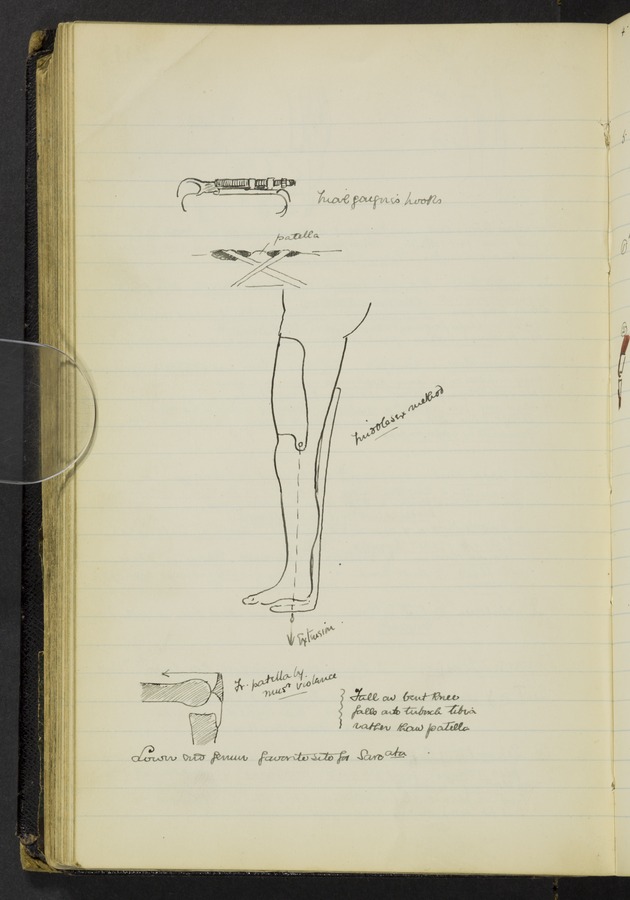 Malgaigne's hooks
patella
Middlesex method
Extension
Fr. patella by
musr violence
Fall on bent knee
falls onto tubercle tibia
rather than patella
Lower end femur favorite site for Sarcomata